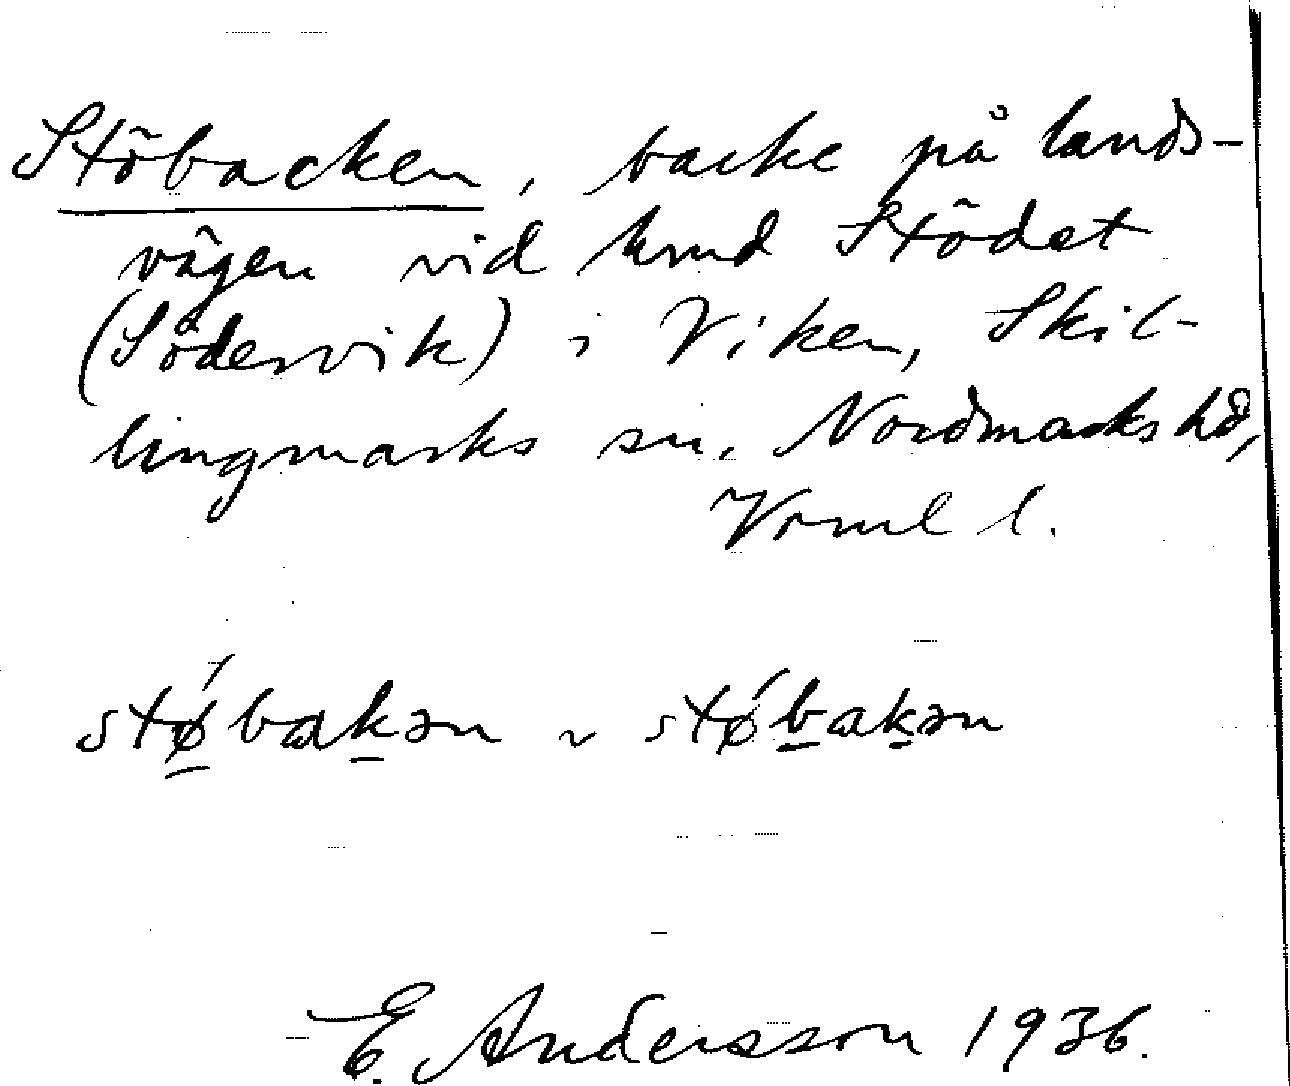 Stöbacken, backe på lands-
vägen vid hmd Stödet
(Södervik) i Viken, Skil-
lingmarks sn, Nordmarks hd,
Vrml l.
stǿbakən ~ stǿbakən
E. Andersson 1936.